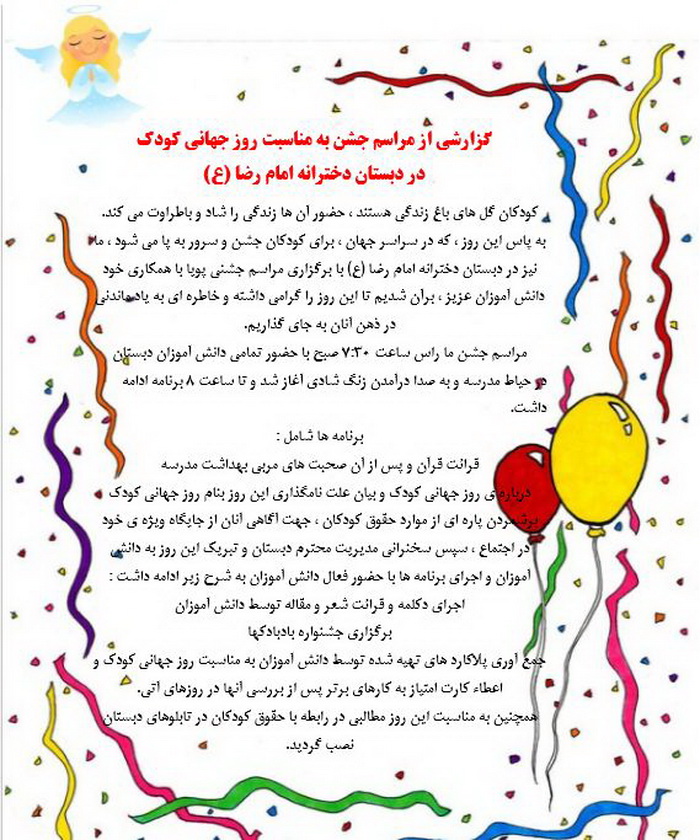 گزارشی از مراسم جشن به مناسبت روز جهانی کودک
در دبستان دخترانه امام رضا (ع)
کودکان گل های باغ زندگی هستند ، حضور آن ها زندگی را شاد و باطراوت می کند.
به پاس این روز ، که در سراسر جهان ، برای کودکان جشن و سرور به پا می شود ، ما
نیز در دبستان دخترانه امام رضا (ع) با برگزاری مراسم جشنی پویا با همکاری خود
دانش آموزان عزیز ، برآن شدیم تا این روز را گرامی داشته و خاطره ای به یادماندنی
در ذهن آنان به جای گذاریم.
مراسم جشن ما راس ساعت ۷:۳۰ صبح با حضور تمامی دانش آموزان دبستان
در حیاط مدرسه و به صدا درآمدن زنگ شادی آغاز شد و تا ساعت ۸ برنامه ادامه
داشت.
برنامه ها شامل :
قرائت قرآن و پس از آن صحبت های مربی بهداشت مدرسه
درباره ی روز جهانی کودک و بیان علت نامگذاری این روز بنام روز جهانی کودک
برشمردن پاره ای از موارد حقوق کودکان ، جهت آگاهی آنان از جایگاه ویژه ی خود
در اجتماع ، سپس سخنرانی مدیریت محترم دبستان و تبریک این روز به دانش
آموزان و اجرای برنامه ها با حضور فعال دانش آموزان به شرح زیر ادامه داشت :
اجرای دکلمه و قرائت شعر و مقاله توسط دانش آموزان
برگزاری جشنواره بادبادکها
جمع آوری پلاکارد های تهیه شده توسط دانش آموزان به مناسبت روز جهانی کودک و
اعطاء کارت امتیاز به کارهای برتر پس از بررسی آنها در روزهای آتی.
همچنین به مناسبت این روز مطالبی در رابطه با حقوق کودکان در تابلوهای دبستان
نصب گردید.